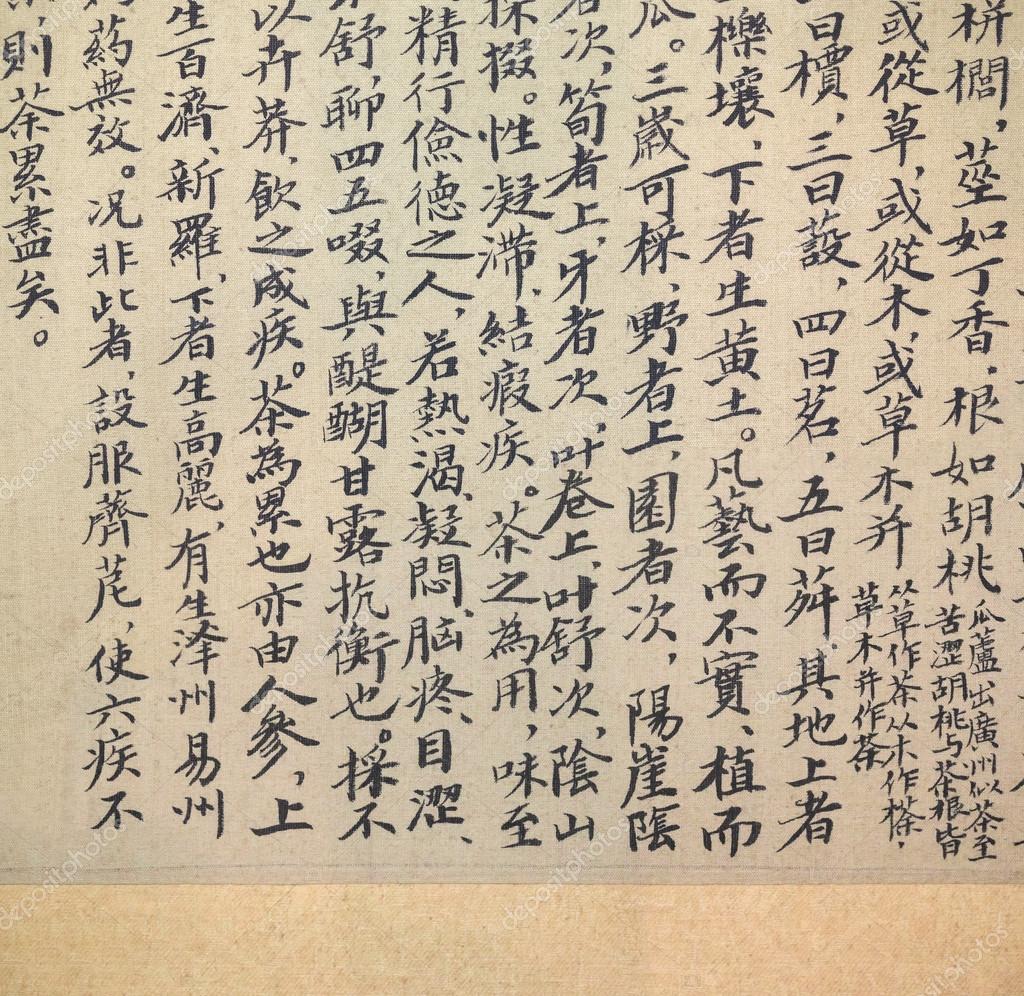 栟櫚,莖如丁香,根如胡桃
瓜蘆出廣州似茶至
苦澀胡桃与茶根皆
或從草,或從木,或草木并
从草作茶从木作㮈,
草木并作茶
曰檟,三曰蔎,四曰茗,五曰荈 其地上者
櫟壤、下者生黄土。凡藝而不實、植而
瓜。三歲可採、野者上、園者次,陽崖陰
者次,筍者上,牙者次,叶卷上,叶舒次,陰山
採掇。性凝滯,結瘕疾。茶之為用,味至
精行儉德之人,若熱渴、凝悶、脑疼、目澀、
舒,聊四五啜,與醍醐甘露抗衡也。採不
以卉莽,飲之成疾。茶為累也亦由人參,上
生百濟、新羅,下者生高麗,有生泽州易州
药無效。况非此者,設服薺苨,使六疾不
則茶累盡矣。
depositphotos